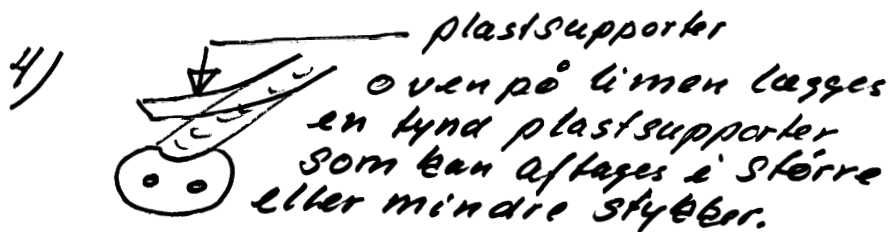 4)
plastsupporter
ovenpå limen lægges
en tynd plastsupporter
som kan aftages i større
eller mindre stykker.